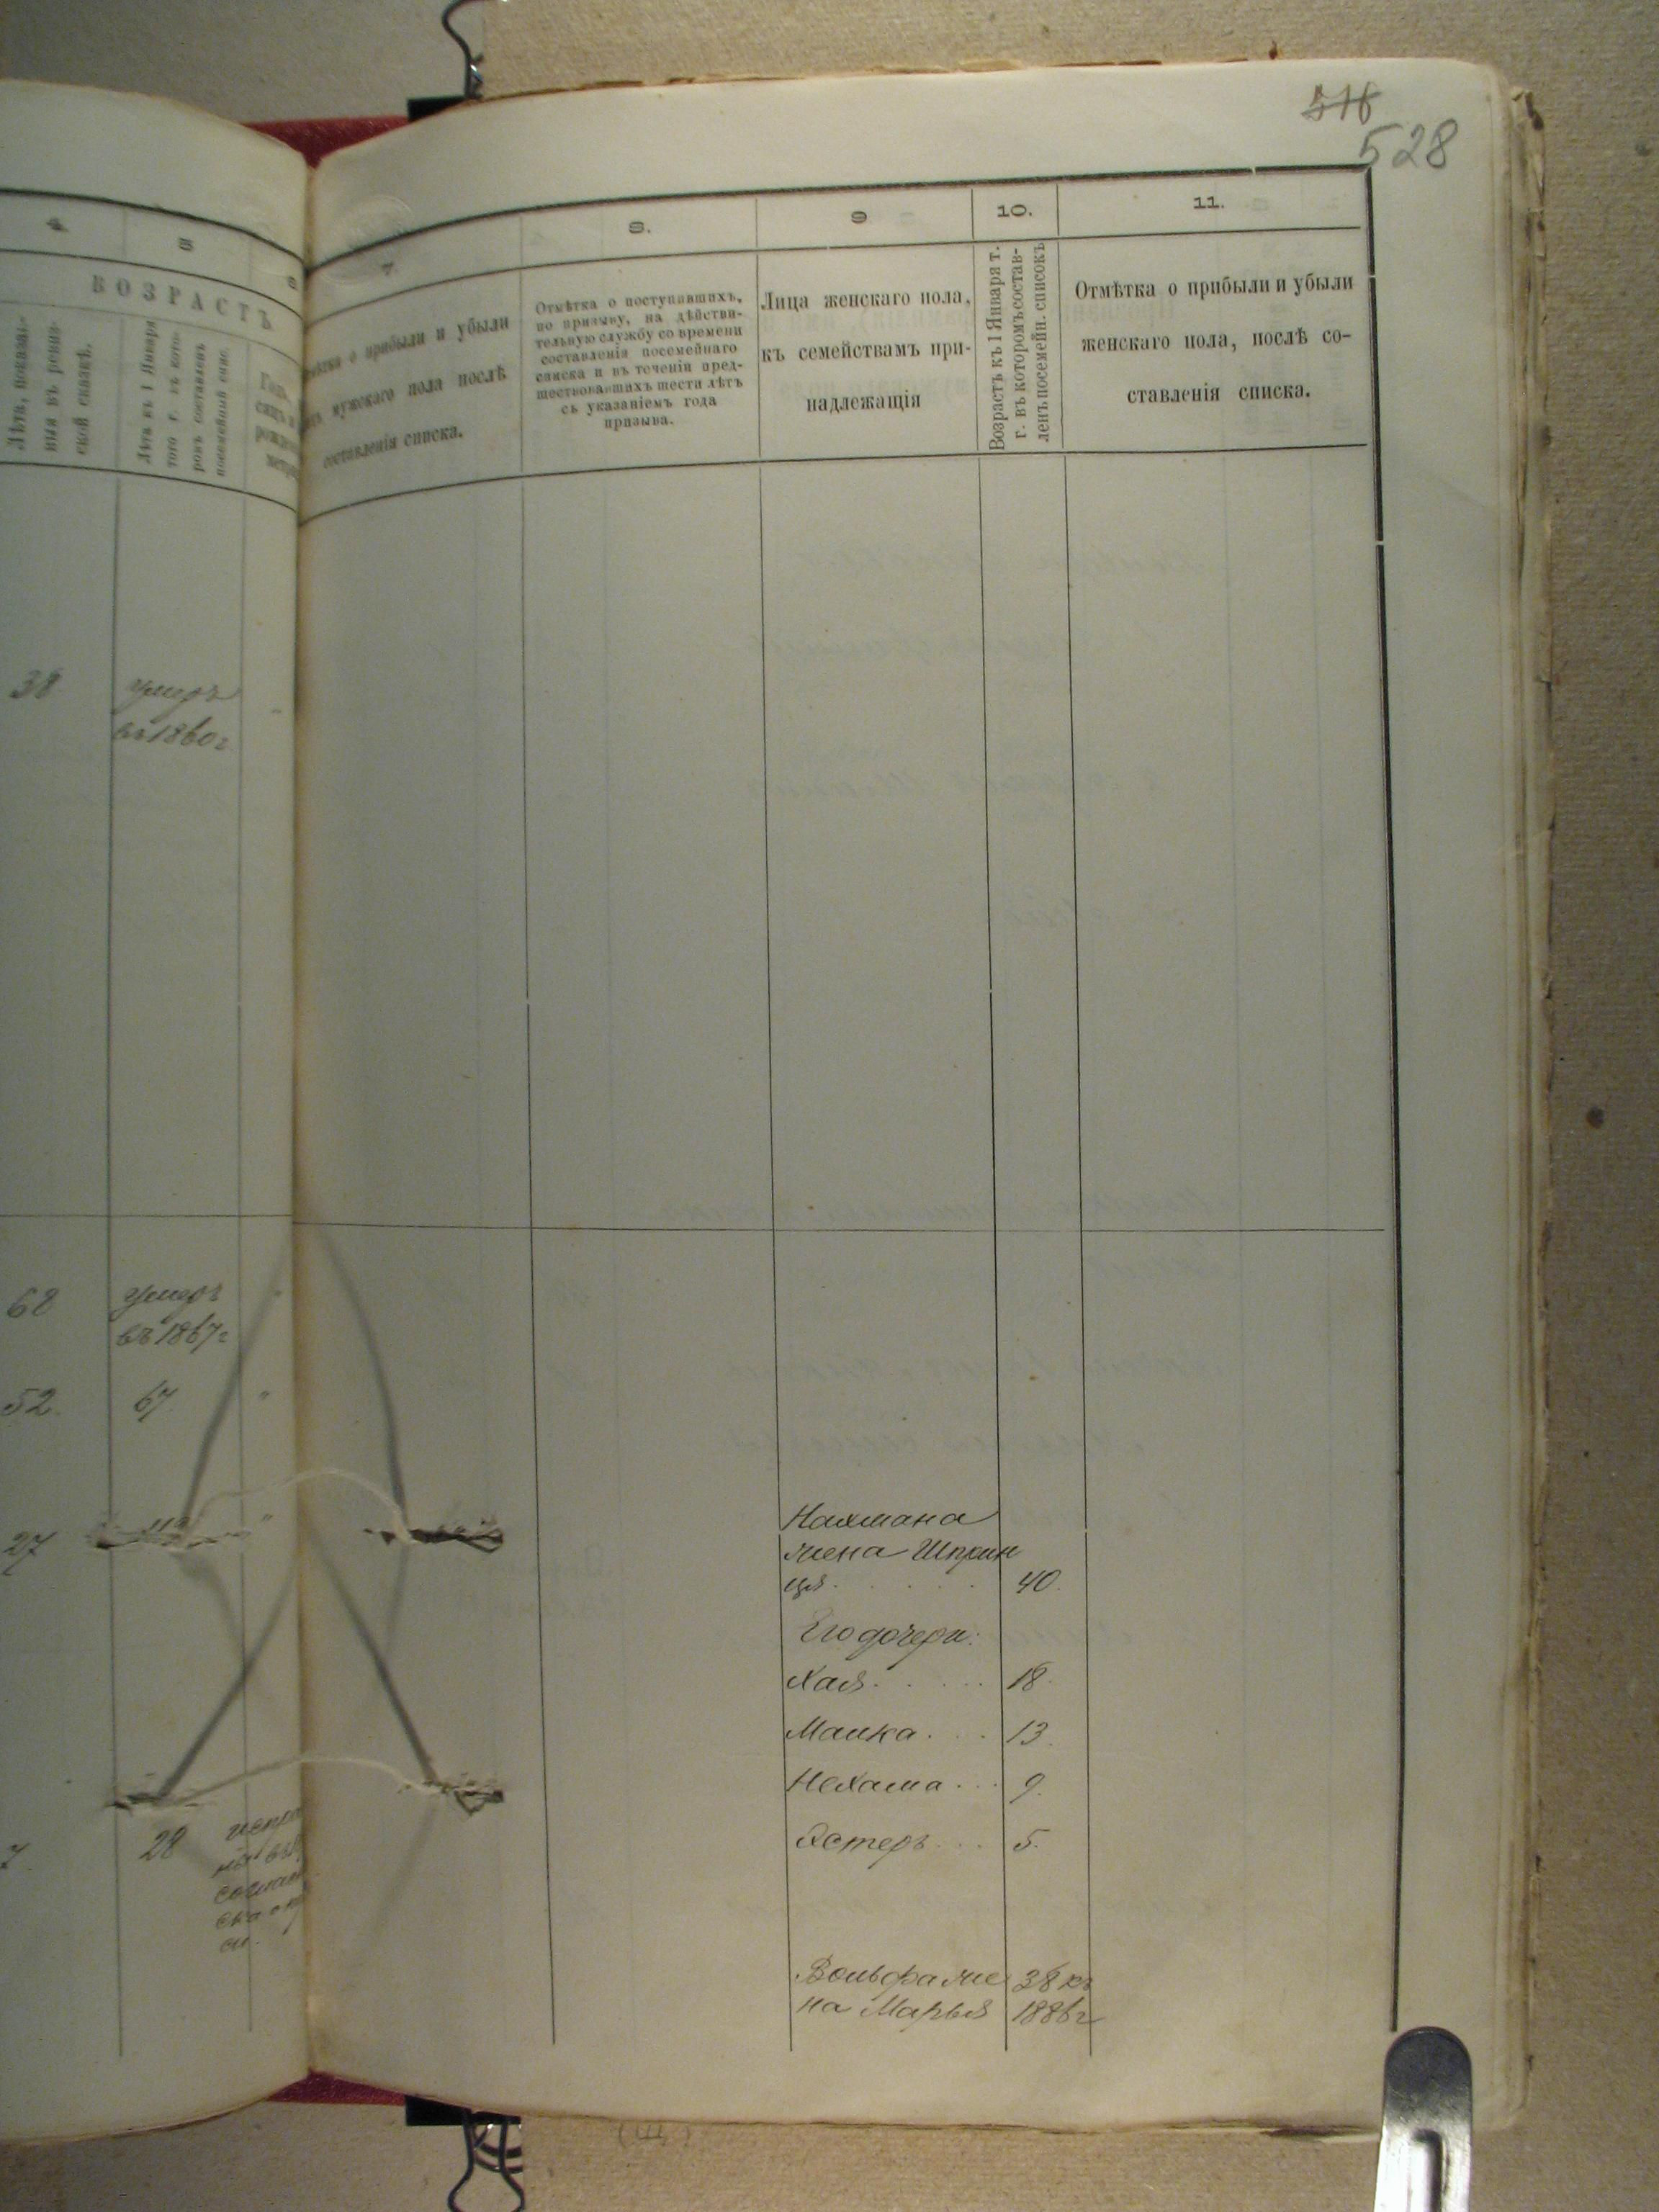 516
528
4
5
6
ВОЗРАСТЪ
Лѣта, показан-
ныя въ ревиз-
ской сказкѣ.
Лѣта къ 1 Января
того г. въ кото-
ромъ составленъ
посемейный спис.
38
умеръ
въ 1860 г
62
умеръ
въ 1867 г
52.
67.
"
27
"
28
7
8.
9
10.
11.
о прибыли и убыли
мужскаго пола послѣ
составленія списка.
Отмѣтка о поступившихъ,
по призыву, на дѣйстви-
тельную службу со времени
составленія посемейнаго
списка и въ теченіи пред-
шествовавшихъ шести лѣтъ
съ указаніемъ года
призыва.
Лица женскаго пола,
къ семействамъ при-
надлежащія
Возрастъ къ 1 Января т.
г. въ которомъ состав-
ленъ посемейн. списокъ
Отмѣтка о прибыли и убыли
женскаго пола, послѣ со-
ставленія списка.
Нахмана
жена Шприн
ця . . . . . 40.
Его дочери:
Хая . . . . . 18.
Малка . . . 13.
Нехама . . . 9.
Эстеръ . . . 5.
Вольфа же 38 къ
на Марья 1886 г